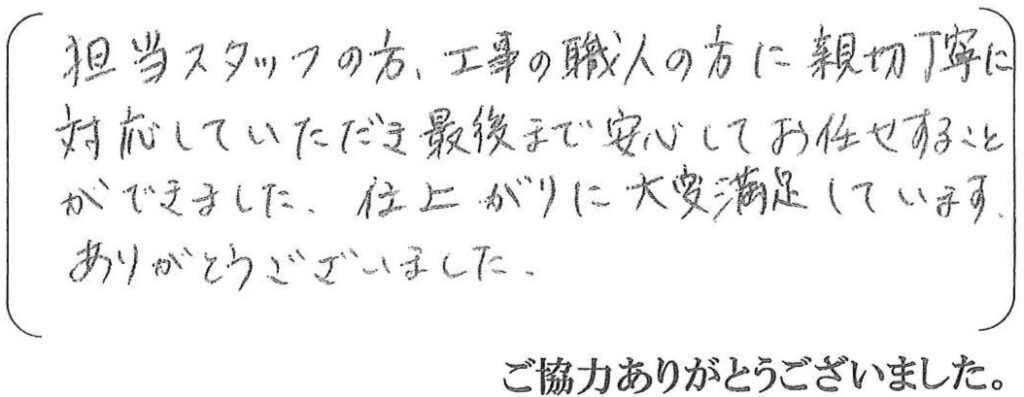 担当スタッフの方、工事の職人の方に親切丁寧に
対応していただき最後まで安心してお任せすること
ができました、仕上がりに大変満足しています、
ありがとうございました、
ご協力ありがとうございました。